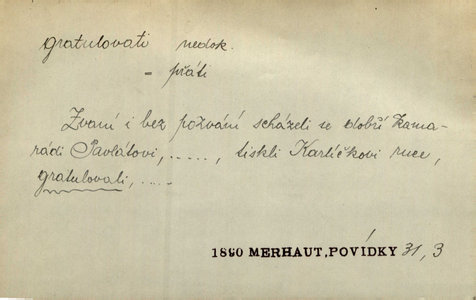 gratulovati nedok.
= přáti
Zvaní i bez pozvání scházeli se dobří kama-
rádi Pavlátovi, ....., tiskli Karlíčkovi ruce,
gratulovali, ....
1890 MERHAUT, POVÍDKY 31, 3